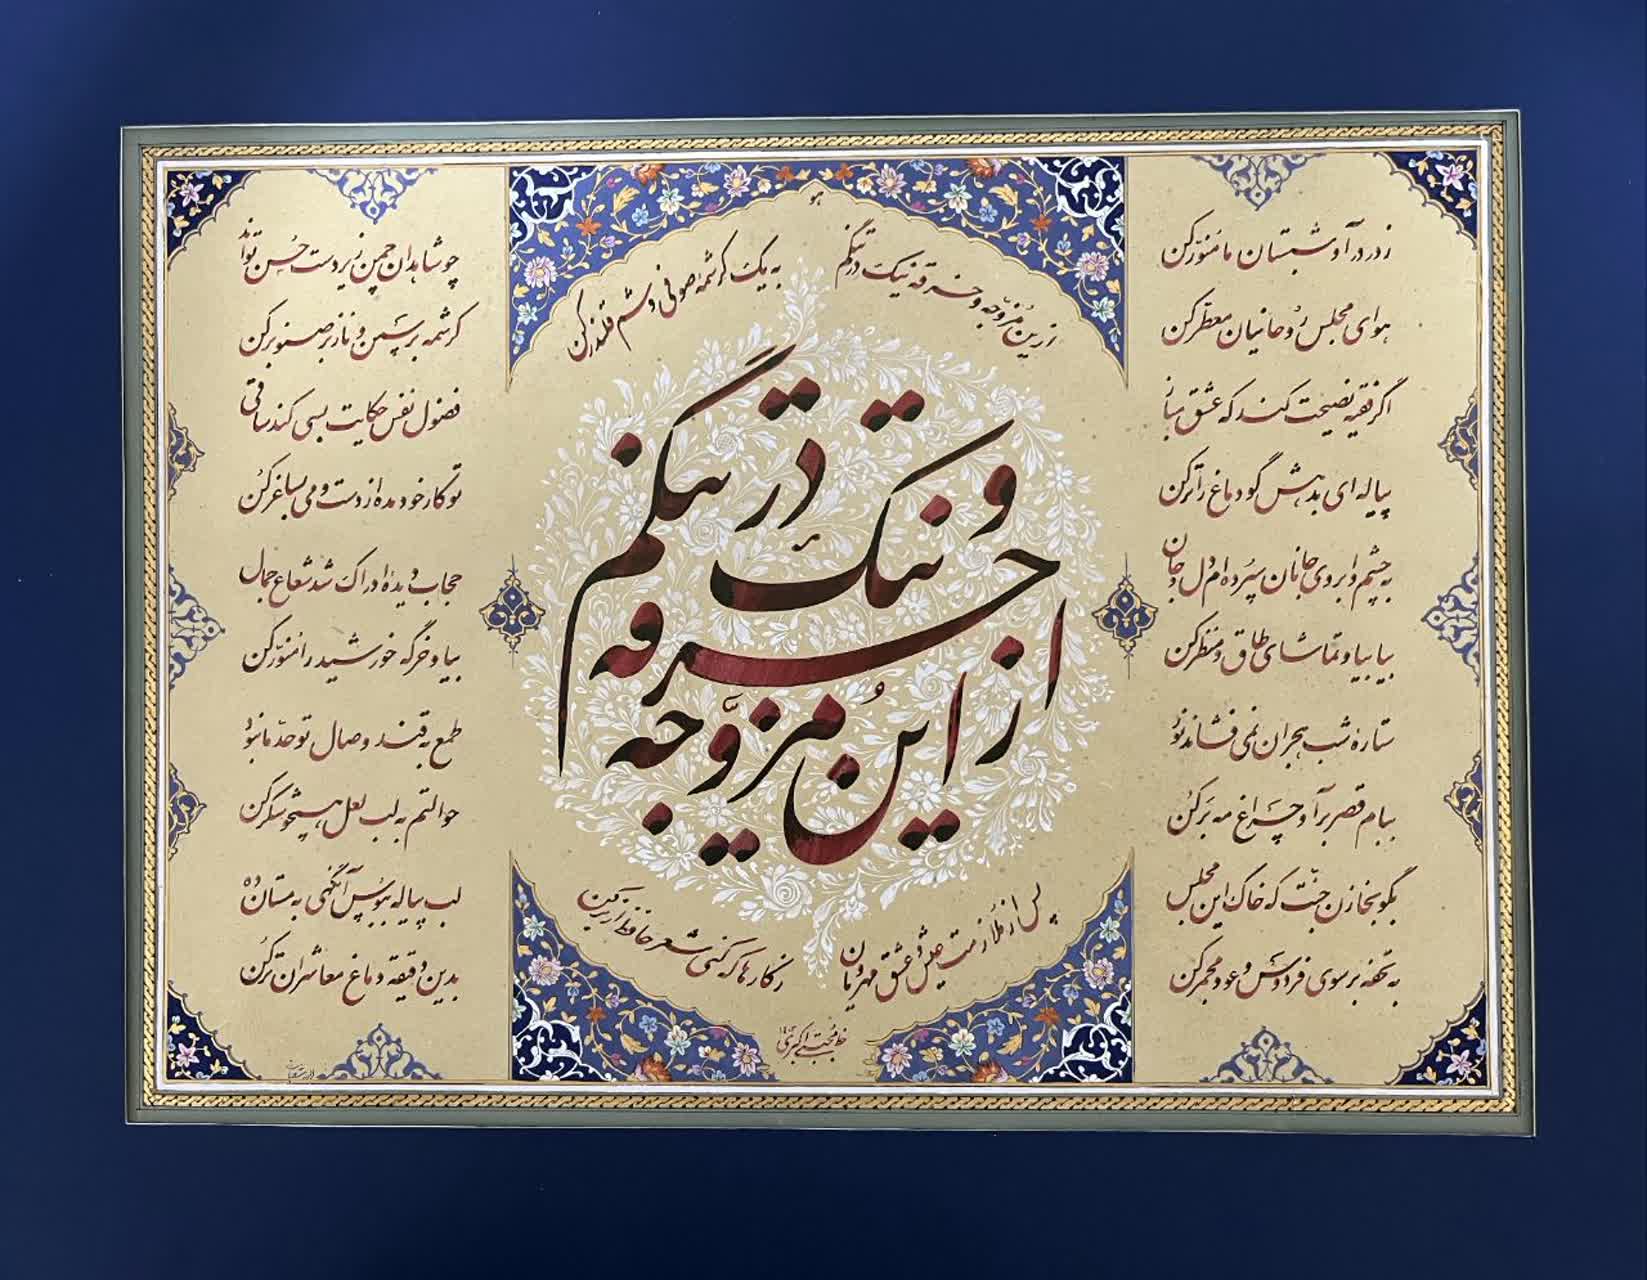 هو
ز در درآ و شبستان ما منوّر کن
هوای مجلس روحانیان معطر کن
اگر فقیه نصیحت کند که عشق مباز
پیاله‌ای بدهش گو دماغ را تر کن
به چشم و ابروی جانان سپرده‌ام دل و جان
بیا بیا و تماشای طاق و منظر کن
ستاره شب هجران نمی‌فشاند نور
ببام قصر برآ و چراغ مه بر کن
بگو بخازن جنّت که خاک این مجلس
به تحفه بر سوی فردوس و عود مجمر کن
ازین مزوّجه و خرقه نیک در تنگم
به یک کرشمه صوفی وشم قلندر کن
از این مزوّجه و خرقه نیک در تنگم
چو شاهدان چمن زیردست حُسن تواند
کرشمه بر سمن و ناز بر صنوبر کن
فضول نفس حکایت بسی کند ساقی
تو کار خود مده از دست و می بساغر کن
حجاب دیدهٔ ادراک شد شعاع جمال
بیا و خرگه خورشید را منوّر کن
طمع به قند وصال تو حدّ ما نبود
حوالتم به لب لعل همچو شکر کن
لب پیاله ببوس آنگهی به مستان ده
بدین دقیقه دماغ معاشران تر کن
پس از ملازمت عیش و عشق مهرویان
ز کارها که کنی شعر حافظ از بر کن
خط مجتبی اکبری ۱۴۰۳